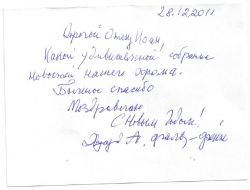 28.12.2011
Дорогой Отец Иоан,
Какой удивительный! собрание
новостей нашего
Большое спасибо
Поздравляю
С Новым Годом!
Эдуард А.